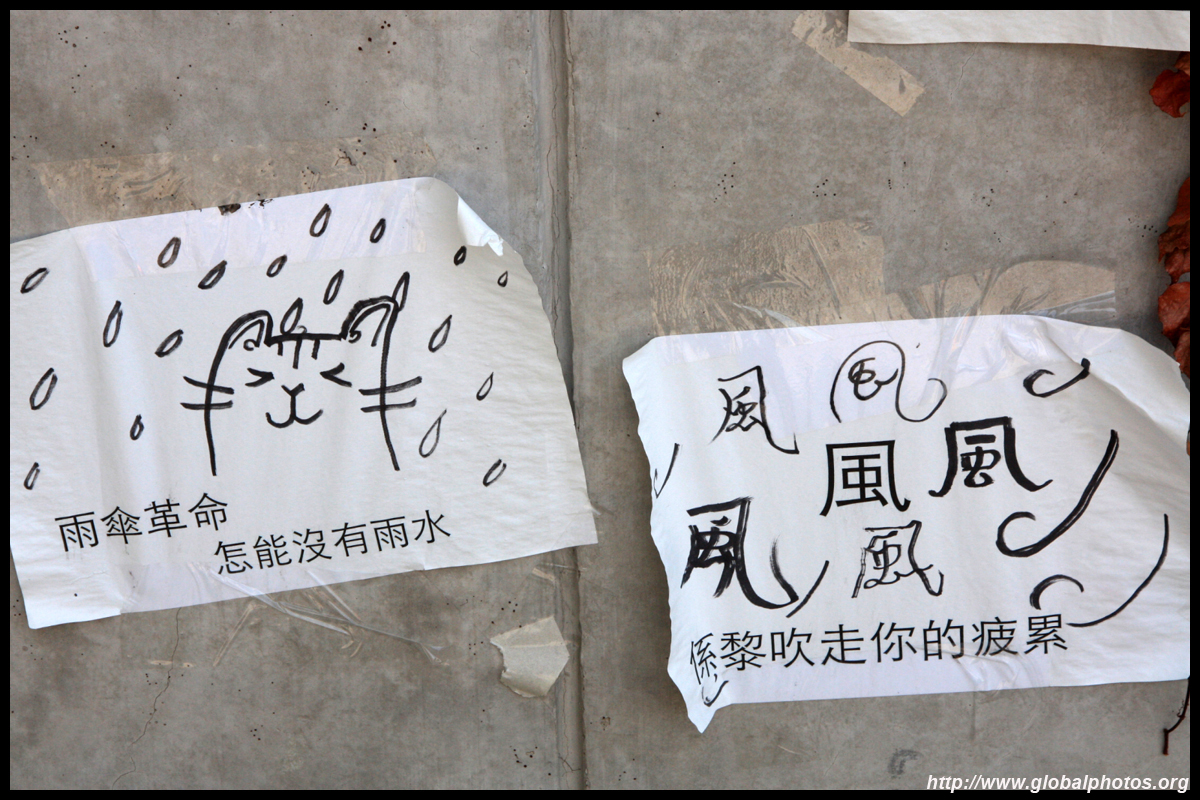 雨傘革命
怎能沒有雨水
風
風
風
風
風
風
係黎吹走你的疲累
http://www.globalphotos.org